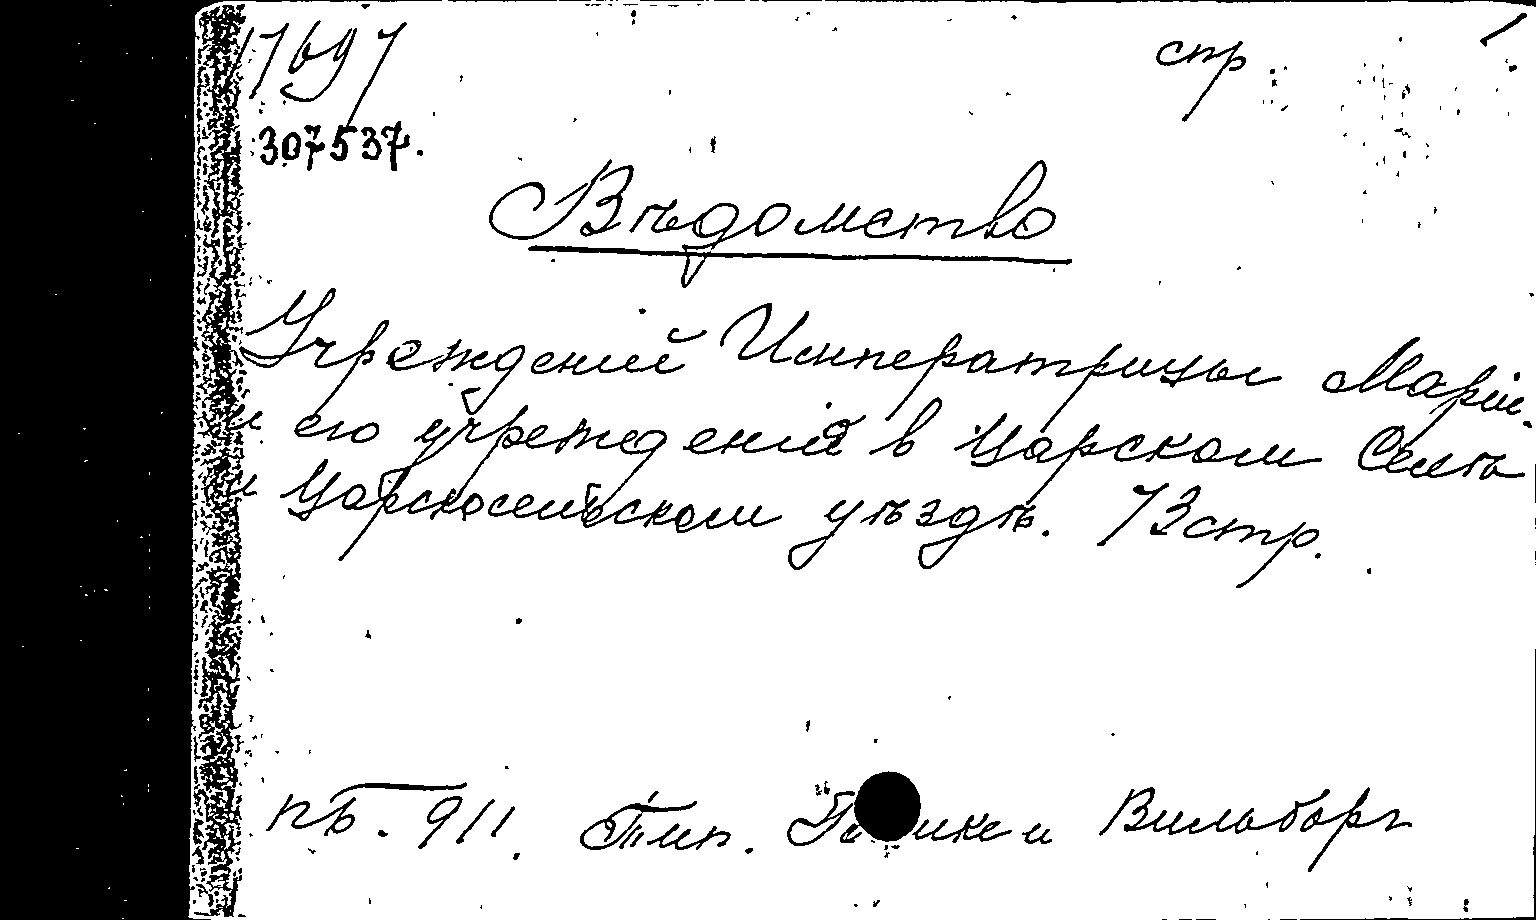 17697
спр
307537.
Вѣдомство
Учреждений Императрицы Маріи.
и его учреждения в Царском Селѣ
и Царскосельском уѣздѣ. 73 стр.
пб. 911. Тип. и Вильборг